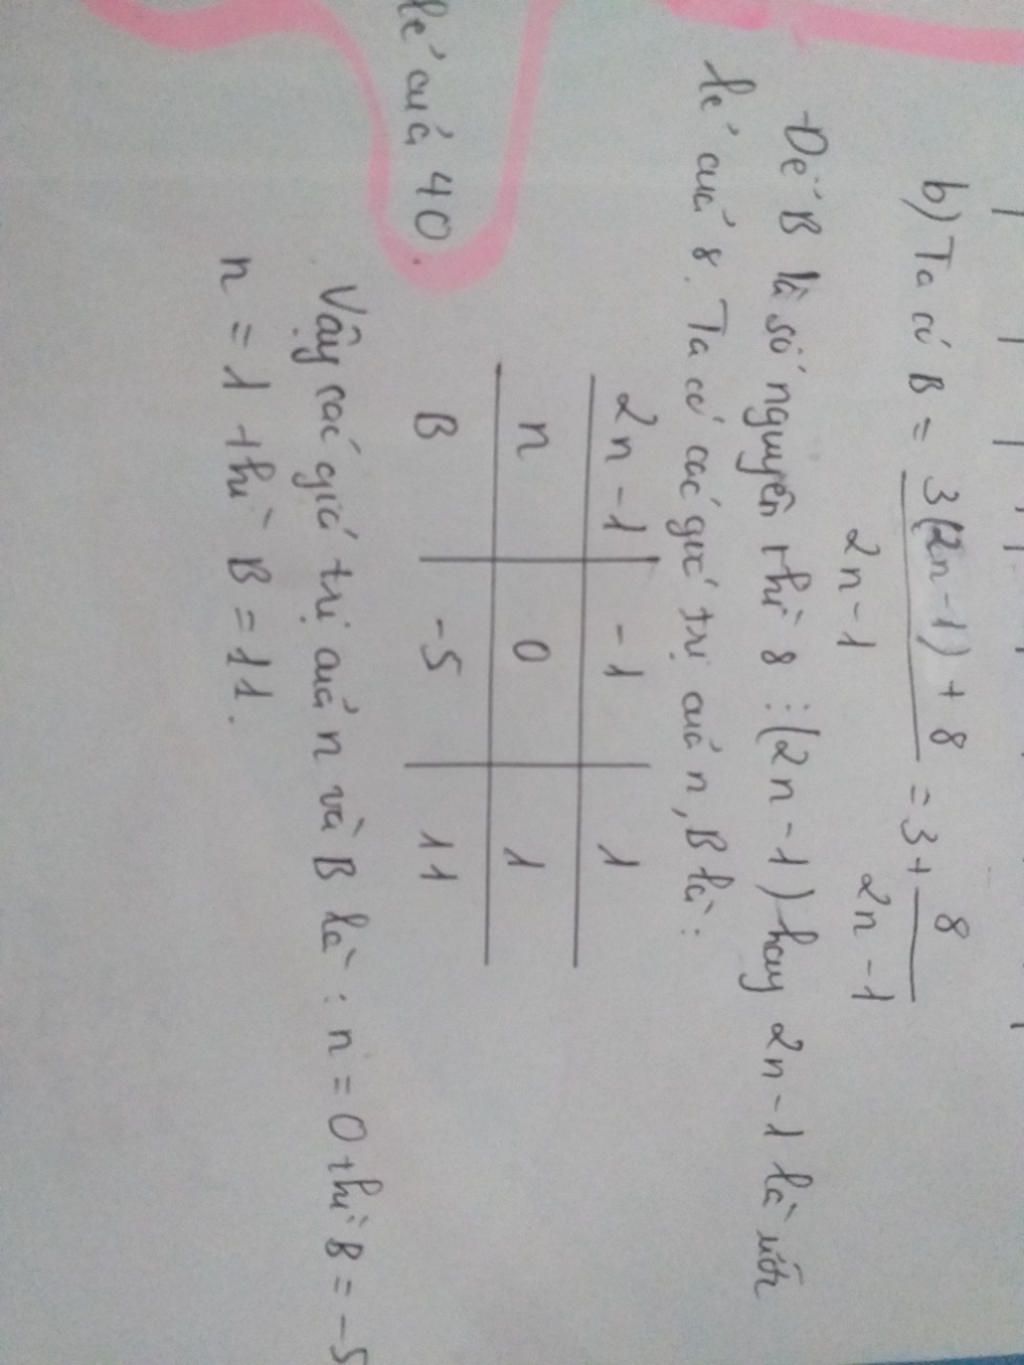 b) Ta có B = 3(2n-1) + 8 / 2n-1 = 3 + 8 / 2n-1
Để B là số nguyên thì 8 ⋮ (2n-1) hay 2n-1 là ước
lẻ của 8. Ta có các giá trị của n, B là:
2n-1 -1 1
n 0 1
B -5 11
lẻ của 40.
Vậy các giá trị của n và B là: n = 0 thì B = -5
n = 1 thì B = 11.